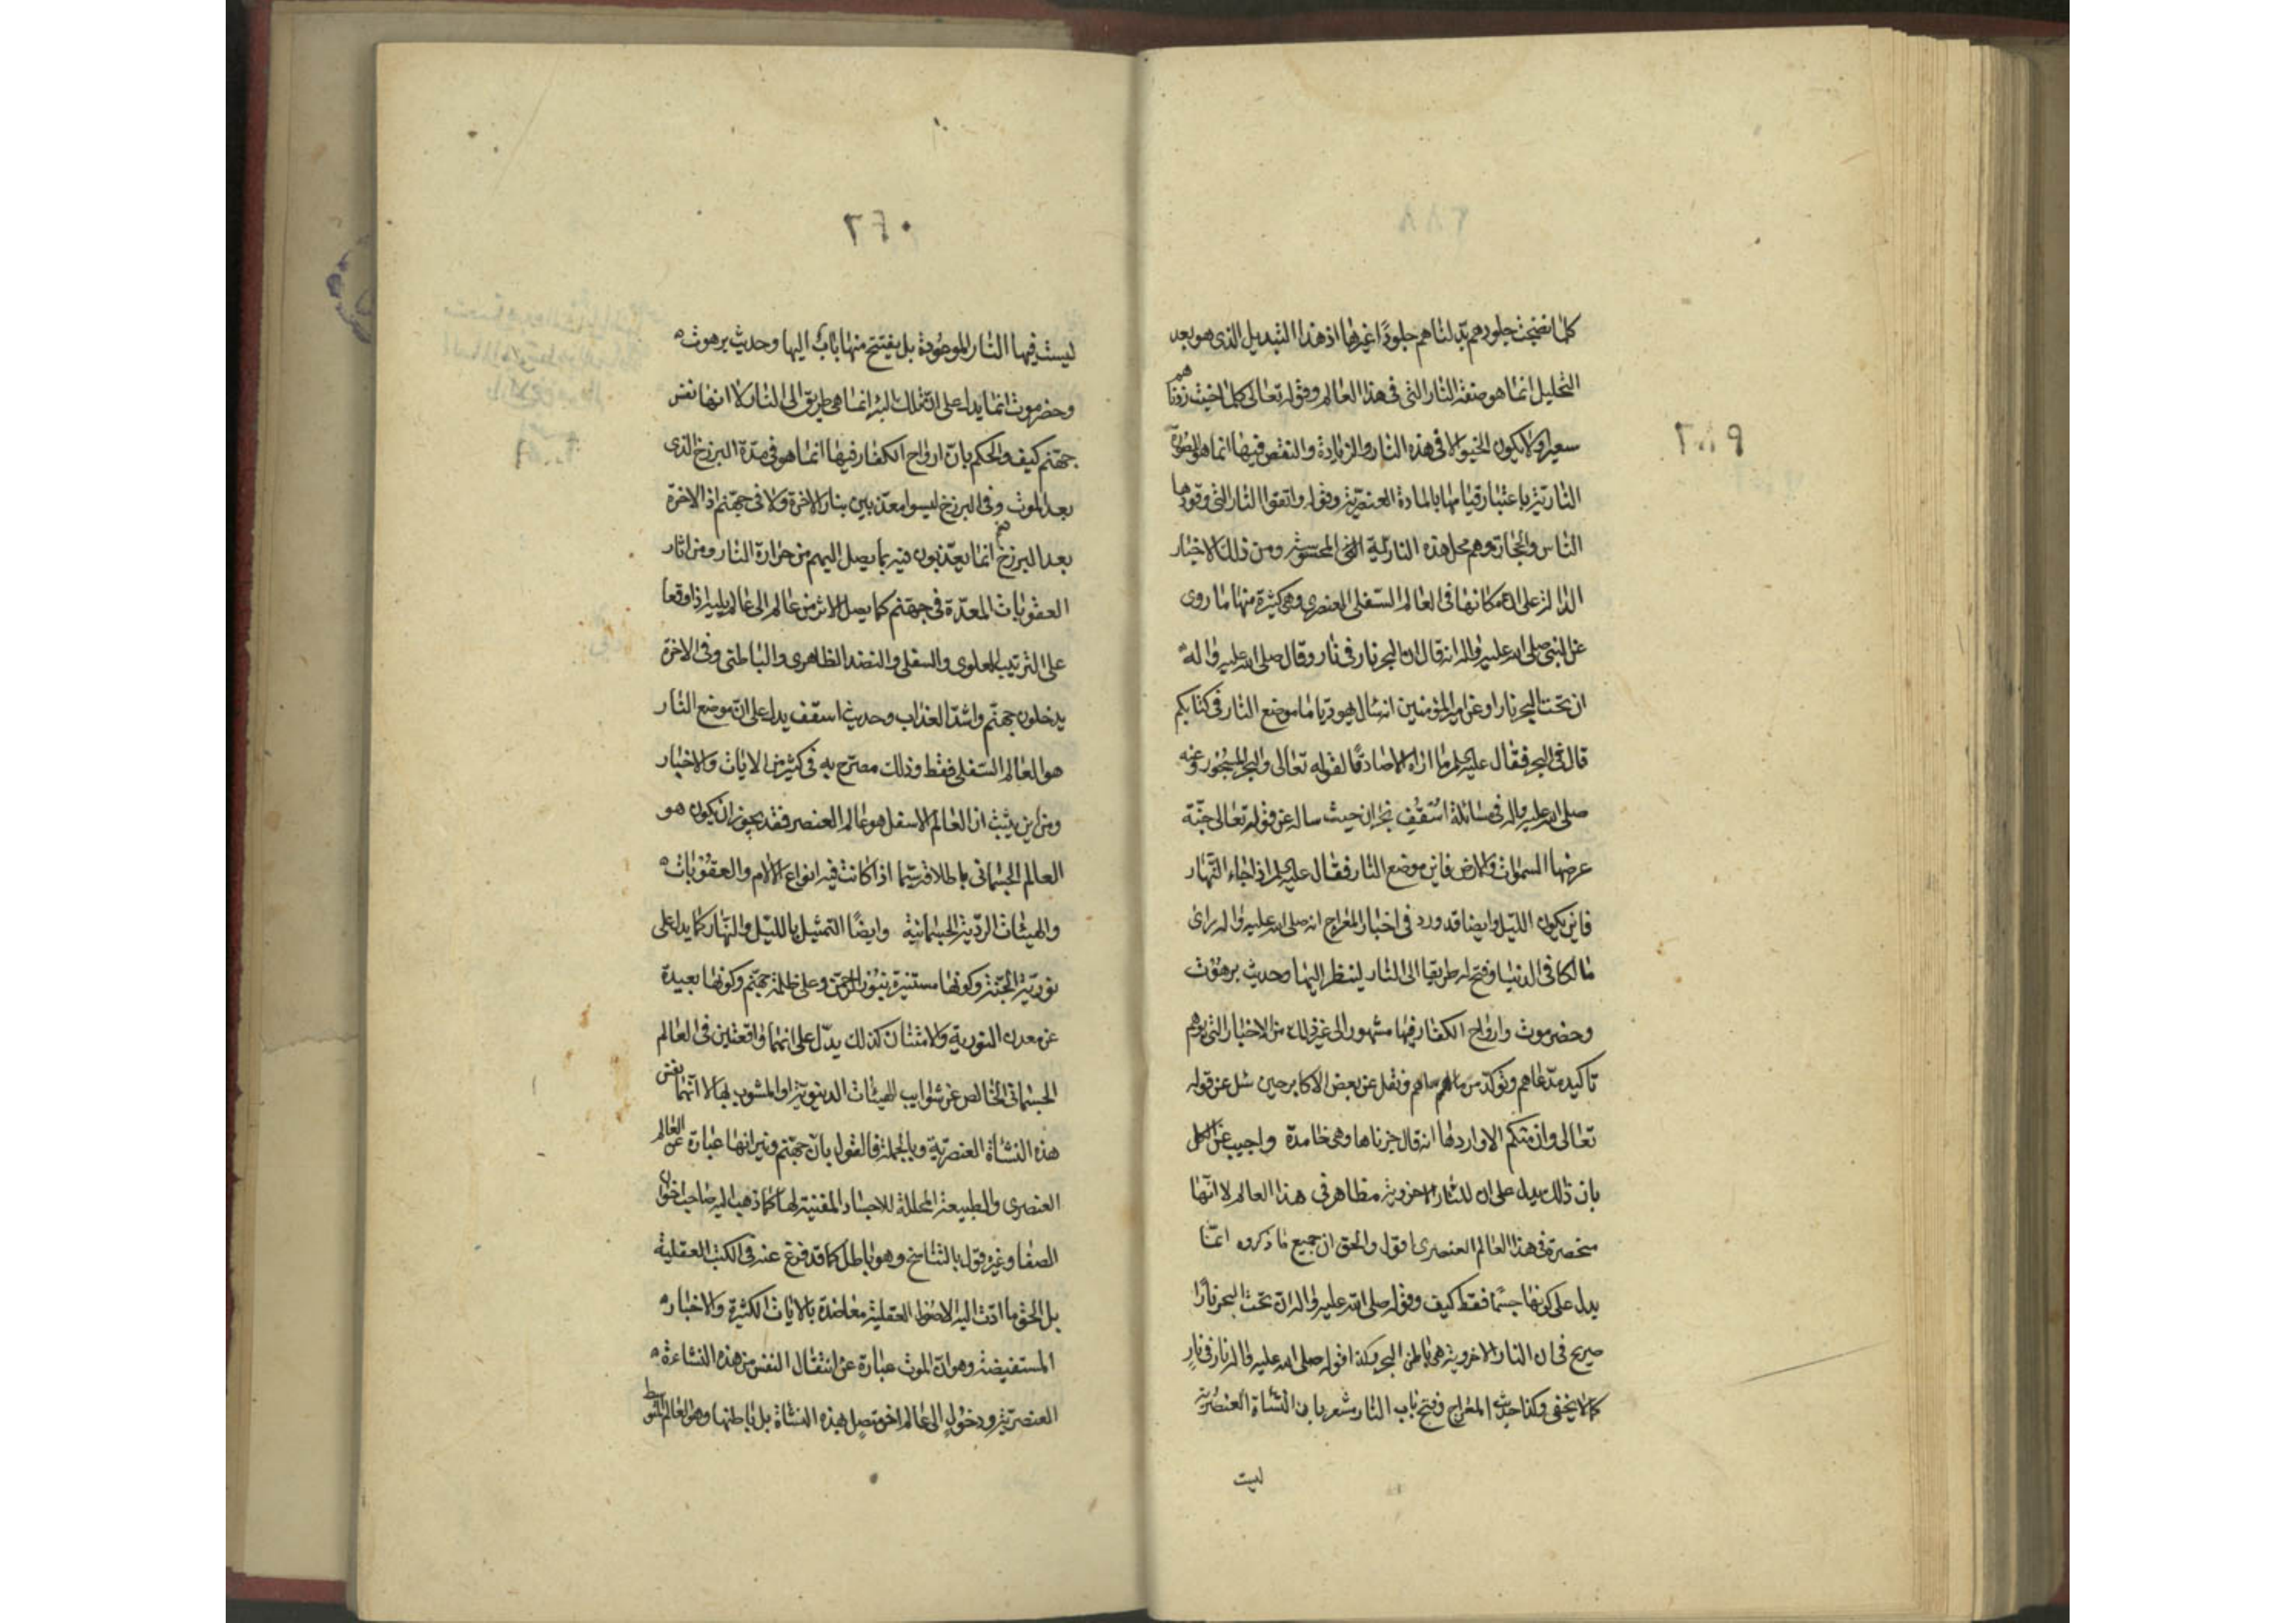 كلما نضجت جلودهم بدلناهم جلودا غيرها اذ هذا التبديل الذى هو بعد
التحليل انما هو صفة النار التى فى هذا العالم وقوله تعالى كلما خبت زدناهم
سعيرا ولا يكون الخبو الا فى هذه النار والزيادة والنقص فيها انما هو للصورة
النارية باعتبار قيامها بالمادة العنصرية وقوله واتقوا النار التى وقودها
الناس والحجارة وهم محل هذه النارية التى المحسوسة ومن ذلك الاخبار
الدالة على ان مكانها فى العالم السفلى العنصرى وهى كثيرة منها ما روى
عن النبى صلى الله عليه واله انه قال ان البحر نار فى نار وقال صلى الله عليه واله
ان تحت البحر نارا وعن امير المؤمنين انه سال يهوديا ما موضع النار فى كتابكم
قال فى البحر فقال عليه السلم ما اراه الا صادقا لقوله تعالى والبحر المسجور وعنه
صلى الله عليه واله فى مسائلة اسقف نجران حيث ساله عن قوله تعالى جنة
عرضها السموات والارض فاين موضع النار فقال عليه السلم اذا جاء النهار
فاين يكون الليل وايضا قد ورد فى اخبار المعراج انه صلى الله عليه واله راى
مالكا فى الدنيا وفتح له طريقا الى النار لينظر اليها وحديث برهوت
وحضرموت وارواح الكفار فيها مشهور الى غير ذلك من الاخبار التى توهم
تاكيد مدعاهم ونقل عن بعض الاكابر حين سئل عن قوله
تعالى وان منكم الا واردها انه قال جزناها وهى خامدة واجيب عن الكل
بان ذلك يدل على ان للنار الاخروية مظاهر فى هذا العالم لا انها
منحصرة فى هذا العالم العنصرى اقول والحق ان جميع ما ذكروه انما
يدل على كونها جسما فقط كيف وقوله صلى الله عليه واله ان تحت البحر نارا
صريح فى ان النار الاخروية هى باطن البحر وكذا قوله صلى الله عليه واله نار فى نار
كما لا يخفى وكذا حديث المعراج وفتح باب النار مشعر بان النشاة العنصرية
ليست
ليست فيها النار الموجودة بل يفتتح منها باب اليها وحديث برهوت
وحضرموت انما يدل على ان تلك البئر انما هى طريق الى النار لا انها نفس
جهنم كيف والحكم بان ارواح الكفار فيها انما هو فى مدة البرزخ الذى
بعد الموت وفى البرزخ ليسوا معذبين بنار الاخرة ولا فى جهنم اذ الاخرة
بعد البرزخ انما يعذبون فيه بما يصل اليهم من حرارة النار ومن اثار
العقوبات المعدة فى جهنم كما يصل الاثر من عالم الى عالم يليه اذا وقعا
على الترتيب العلوى والسفلى والنضد الظاهرى والباطنى وفى الاخرة
يدخلون جهنم واشد العذاب وحديث اسقف يدل على ان موضع النار
هو العالم السفلى فقط وذلك مصرح به فى كثير من الايات والاخبار
ومن اين يثبت ان العالم الاسفل هو عالم العنصر فقد يجوز ان يكون هو
العالم الجسمانى باطلاقه سيما اذا كانت فيه انواع الالام والعقوبات
والهيئات الردية الجسمانية وايضا التمثيل بالليل والنهار كما يدل على
نورية الجنة وكونها مستنيرة بنور الرحمن وعلى ظلمة جهنم وكونها بعيدة
عن معدن النورية والامتنان كذلك يدل على انهما واقعتين فى العالم
الجسمانى الخالص عن شوايب الهيئات الدنيوية او المشوب بها لا انهما نفس
هذه النشاة العنصرية وبالجملة فالقول بان جهنم ونيرانها عبارة عن العالم
العنصرى والطبيعة المحللة للاجساد المفنية لها كما ذهب اليه صاحب اخوان
الصفا وغيره قول بالتناسخ وهو باطل كما قد فرغ عنه فى الكتب العقلية
بل الحق ما ادت اليه الاصول العقلية معاضدة بالايات الكثيرة والاخبار
المستفيضة وهو ان الموت عبارة عن انتقال النفس من هذه النشاءة
العنصرية ودخول الى عالم اخر متصل بهذه النشاة بل باطنها وهو العالم المتوسط